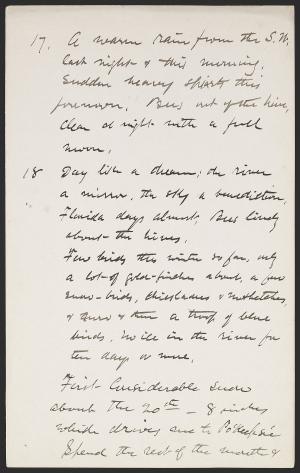 17. A warm rain from the S.W.
last night & this morning.
Sudden heavy spirts this
forenoon. Bees out of the hive,
Clear at night with a full
moon.
18 Day like a dream; the river
a mirror, the sky a benediction,
Florida days almost, Bees lively
about the hives.
Few birds this winter so far, only
a lot of gold-finches about, a few
snow-birds, chickadees & nuthatches,
& now & then a troop of blue
birds, No ice in the river for
ten days or more,
First Considerable snow
about the 20th - 8 inches
which drives me to Po'Keepsie
Spend the rest of the month &